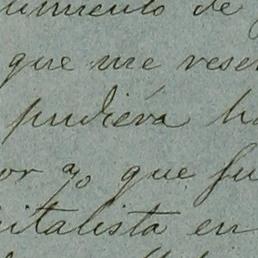 umiento de
que me reser
pudiéra ha
or yo que fu
italista en